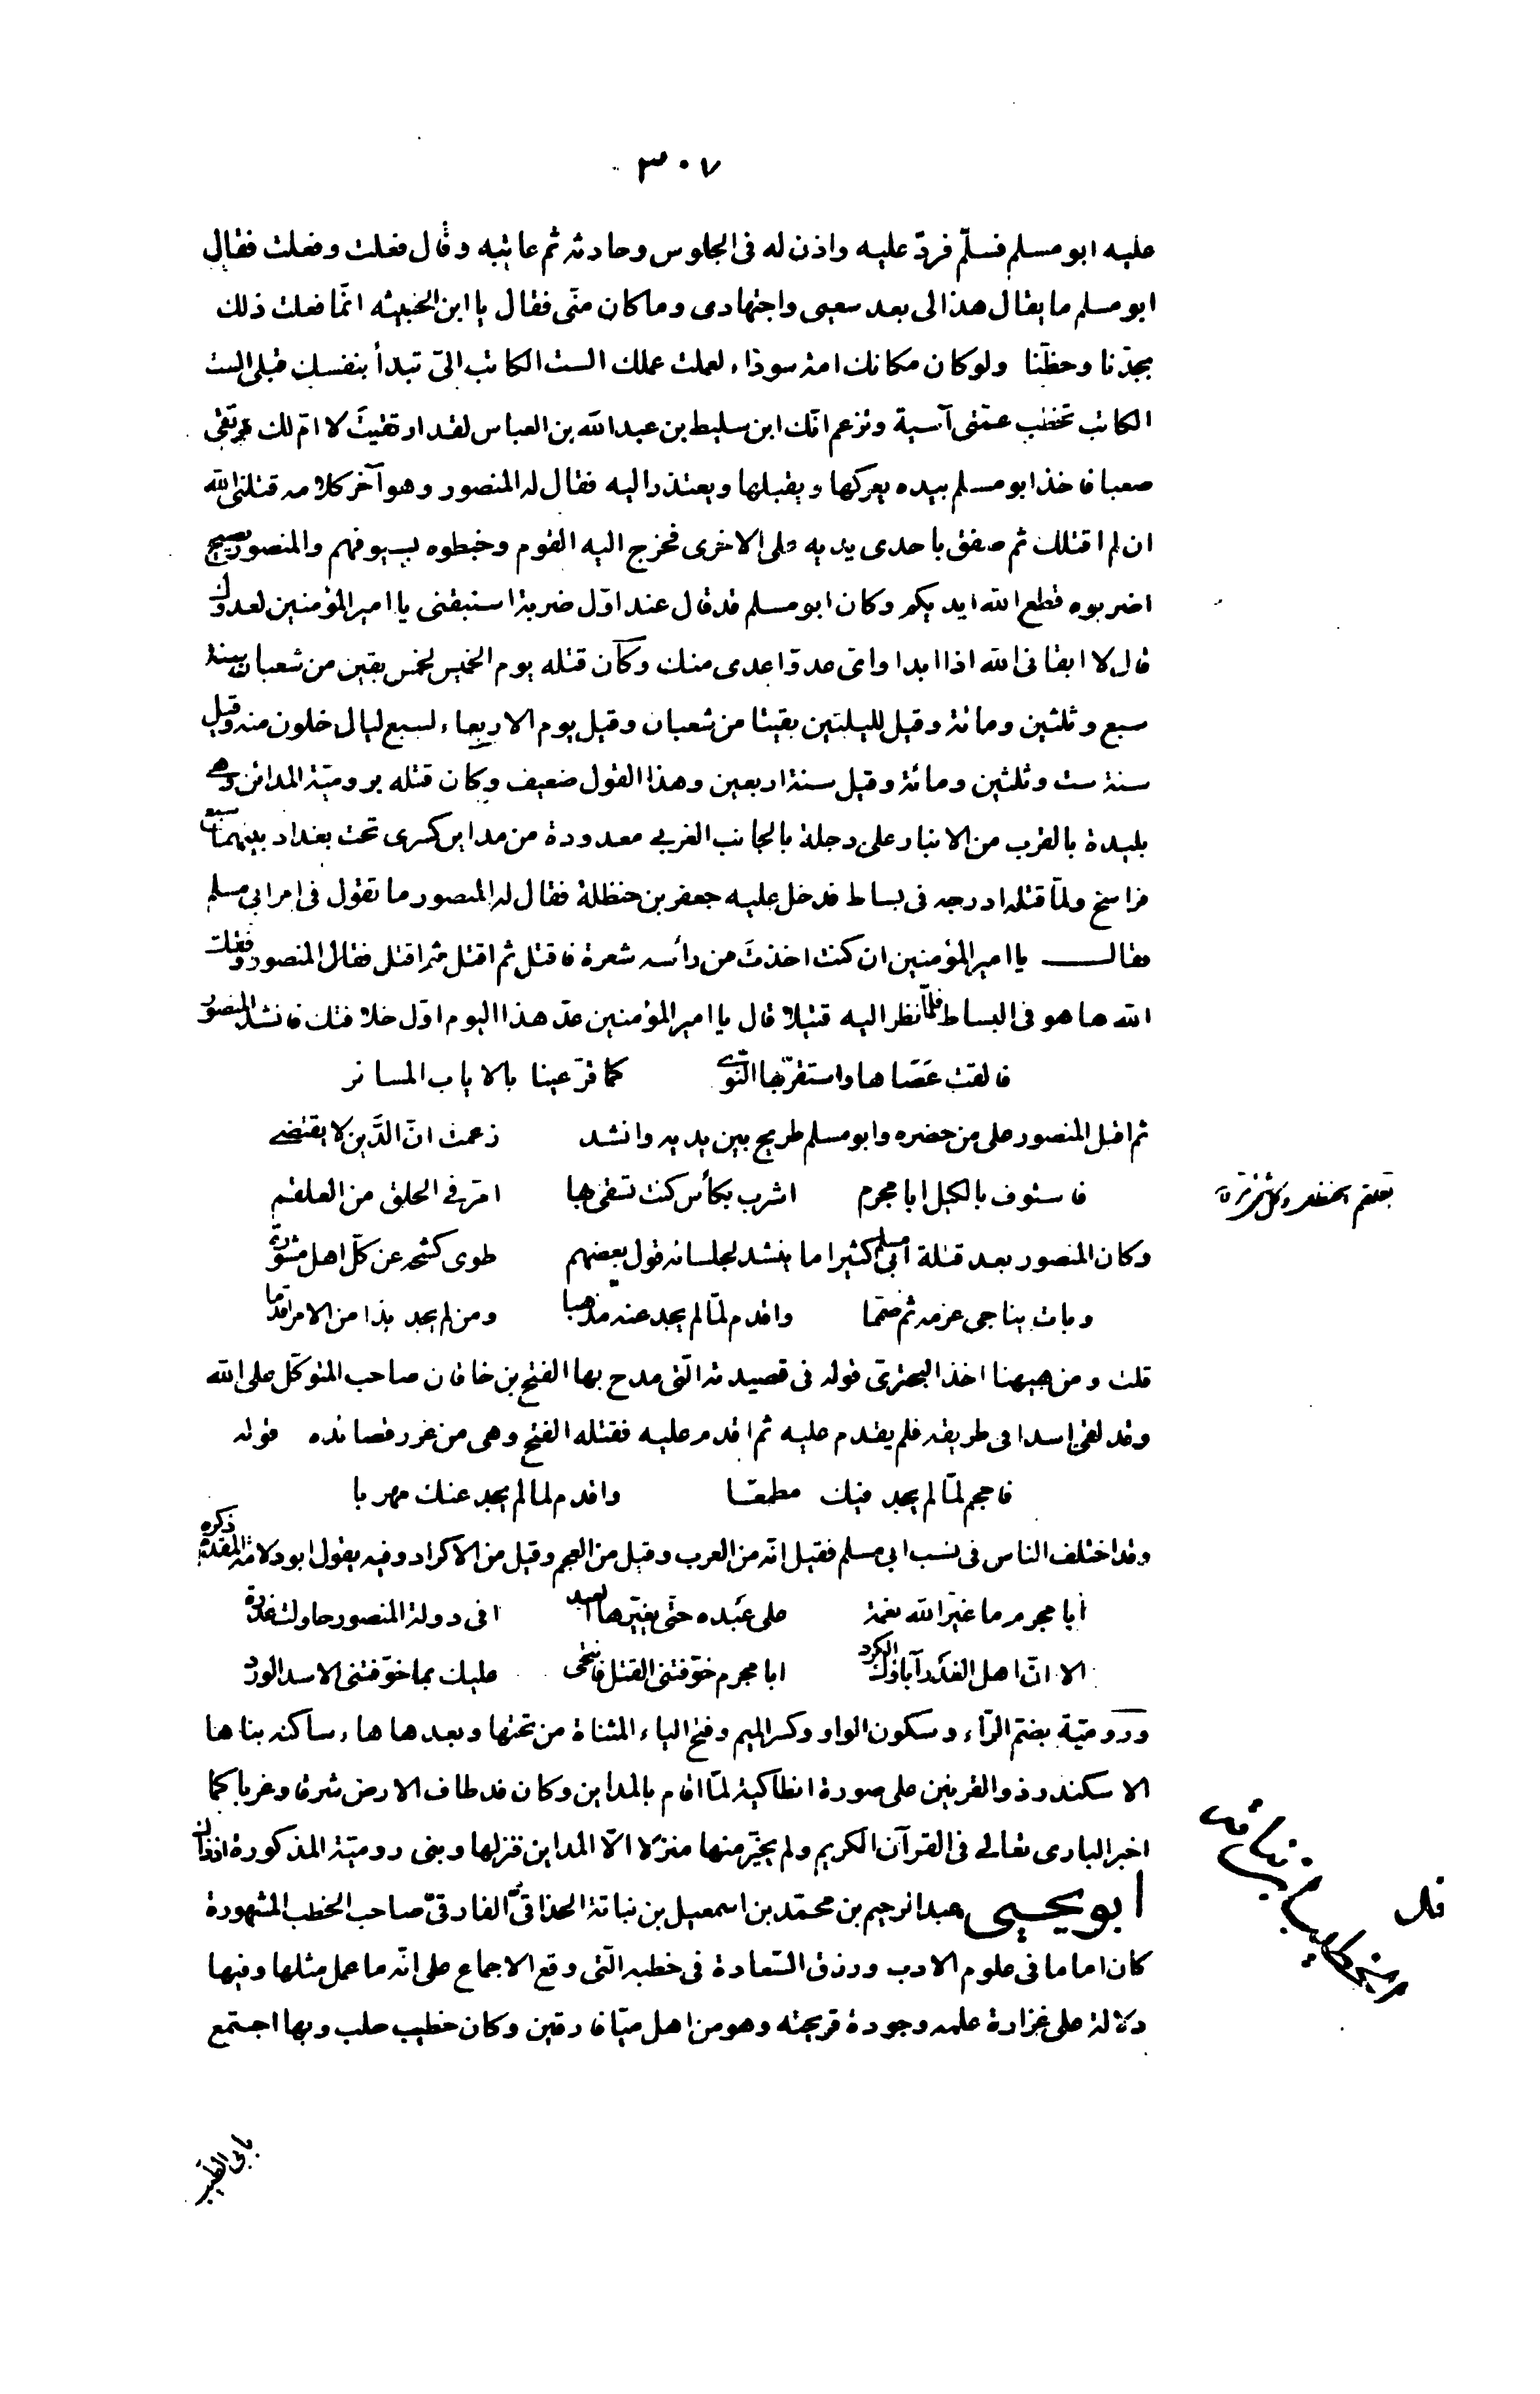 ٣٠٧
عليه ابو مسلم فسلّم فردّ عليه واذن له فى الجلوس وحادثه ثم عاتبه وقال فعلت وفعلت فقال
ابو مسلم ما يقال هذا لى بعد سعيى واجتهادى وما كان منّى فقال يا ابن الخبيثه انّما فعلت ذلك
بجدّنا وحظّنا ولو كان مكانك امة سوداء لعملت عملك الست الكاتب الىّ تبدأ بنفسك قبلى الست
الكاتب تخطب عمّتى آسية وتزعم انّك ابن سليط بن عبد الله بن العباس لقد ارتقيتَ لا امّ لك مرتقى
صعبا فاخذ ابو مسلم بيده يعركها ويقبلها ويعتذر اليه فقال له المنصور وهو آخر كلامه قتلنى الله
ان لم اقتلك ثم صفق باحدى يديه على الاخرى فخرج اليه القوم وخبطوه بسيوفهم والمنصور يصيح
اضربوه قطع الله ايديكم وكان ابو مسلم قد قال عند اوّل ضربة استبقنى يا امير المؤمنين لعدوّك
قال لا ابقانى الله اذا ابدا واىّ عدوّ اعدى منك وكان قتله يوم الخميس لخمس بقين من شعبان سنة
سبع وثلثين ومائة وقيل لليلتين بقيتا من شعبان وقيل يوم الاربعاء لسبع ليال خلون منه وقيل
سنة ست وثلثين ومائة وقيل سنة اربعين وهذا القول ضعيف وكان قتله برومية المدائن وهى
بليدة بالقرب من الانبار على دجلة بالجانب الغربى معدودة من مداين كسرى تحت بغداد بينهما سبع
فراسخ ولمّا قتله ادرجه فى بساط فدخل عليه جعفر بن حنظلة فقال له المنصور ما تقول فى امر ابى مسلم
فقال يا امير المؤمنين ان كنت اخذتَ من رأسه شعرة فاقتل ثم اقتل ثم اقتل فقال المنصور وفقك
الله ها هو فى البساط فلمّا نظر اليه قتيلا قال يا امير المؤمنين عدّ هذا اليوم اوّل خلافتك فانشد المنصور
فالقت عَصَاها واستقرّ بها النّوى كما قرّ عينا بالاياب المسافر
ثم اقبل المنصور على من حضره وابو مسلم طريح بين يديه وانشد زعمت انّ الدَّين لا يقتضى
فاستوف بالكيل ابا مجرم اشرب بكأس كنت تسقى بها امرّ فى الحلق من العلقم
وكان المنصور بعد قتله ابى مسلم كثيرا ما ينشد لجلسائه قول بعضهم طوى كشحه عن كلّ اهل مشورة
وبات يناجى عزمه ثم صمّما واقدم لمّا لم يجد عنه مذهبا ومن لم يجد بدّا من الامر اقدما
قلت ومن هيهنا اخذ البحترىّ قوله فى قصيدته الّتى مدح بها الفتح بن خاقان صاحب المتوكّل على الله
وقد لقى اسدا فى طريقه فلم يقدم عليه ثم اقدم عليه فقتله الفتح وهى من غرر قصائده قوله
فاحجم لمّا لم يجد فيك مطمعًا واقدم لما لم يجد عنك مهربا
وقد اختلف الناس فى نسب ابى مسلم فقيل انّه من العرب وقيل من العجم وقيل من الاكراد وفيه يقول ابو دلامة المقدّم ذكره
أبا مجرم ما غيّر الله نعمة على عَبده حتّى يغيّرها العبد افى دولة المنصور حاولت غدرة
الا انّ اهل الغَدر آباؤك الكرد ابا مجرم خوّفتنى القتل فانتحى عليك بما خوّفتنى الاسد الورد
ورومِيّة بضمّ الرّاء وسكون الواو وكسر الميم وفتح الياء المثناة من تحتها وبعدها هاء ساكنه بناها
الاسكندر ذو القرنين على صورة انطاكية لمّا اقام بالمداين وكان قد طاف الارض شرقا وغربا كما
اخبر البارى تعالى فى القرآن الكريم ولم يخيّر منها منزلا الّا المداين فنزلها وبنى رومية المذكورة اذ ذاك
ابو يحيى عبد الرحيم بن محمّد بن اسمعيل بن نباتة الحذاقىّ الفارقىّ صاحب الخطب المشهورة
كان اماما فى علوم الادب ورزق السّعادة فى خطبه الّتى وقع الاجماع على انّه ما عمل مثلها وفيها
دلالة على غزارة علمه وجودة قريحته وهو من اهل ميّافارقين وكان خطيب حلب وبها اجتمع
بابى الطّيّب